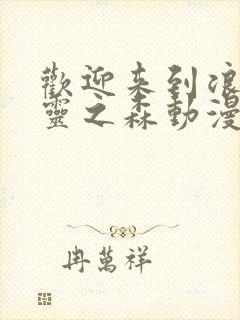 歡迎来到浪
靈之森動漫
冉萬祥